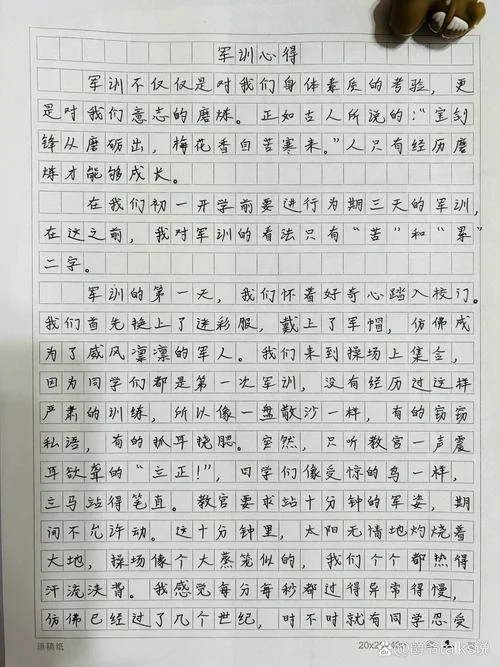 军训心得
军训不仅仅是对我们身体素质的考验，更
是对我们意志的磨炼。正如古人所说的："宝剑
锋从磨砺出，梅花香自苦寒来。"人只有经历磨
炼才能够成长。
在我们初一开学前要进行为期三天的军训，
在这之前，我对军训的看法只有"苦"和"累"
二字。
军训的第一天，我们怀着好奇心踏入校门。
我们首先换上了迷彩服，戴上了军帽，仿佛成
为了威风凛凛的军人。我们来到操场上集合，
因为同学们都是第一次军训，没有经历过这样
严肃的训练，所以像一盘散沙一样，有的窃窃
私语，有的抓耳挠腮。突然，只听教官一声震
耳欲聋的"立正！"，同学们像受惊的鸟一样，
立马站得笔直。教官要求站十分钟的军姿，期
间不允许动。这十分钟里，太阳无情地灼烧着
大地，操场像个大蒸笼似的，我们个个都热得
汗流浃背。我感觉每分每秒都过得异常得慢，
仿佛已经过了几个世纪，时不时就有同学忍受
原稿纸